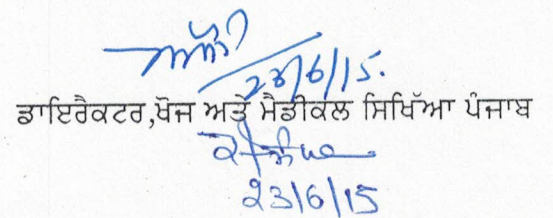 23/6/15.
ਡਾਇਰੈਕਟਰ,ਖੋਜ ਅਤੇ ਮੈਡੀਕਲ ਸਿਖਿੱਆ ਪੰਜਾਬ
23/6/15